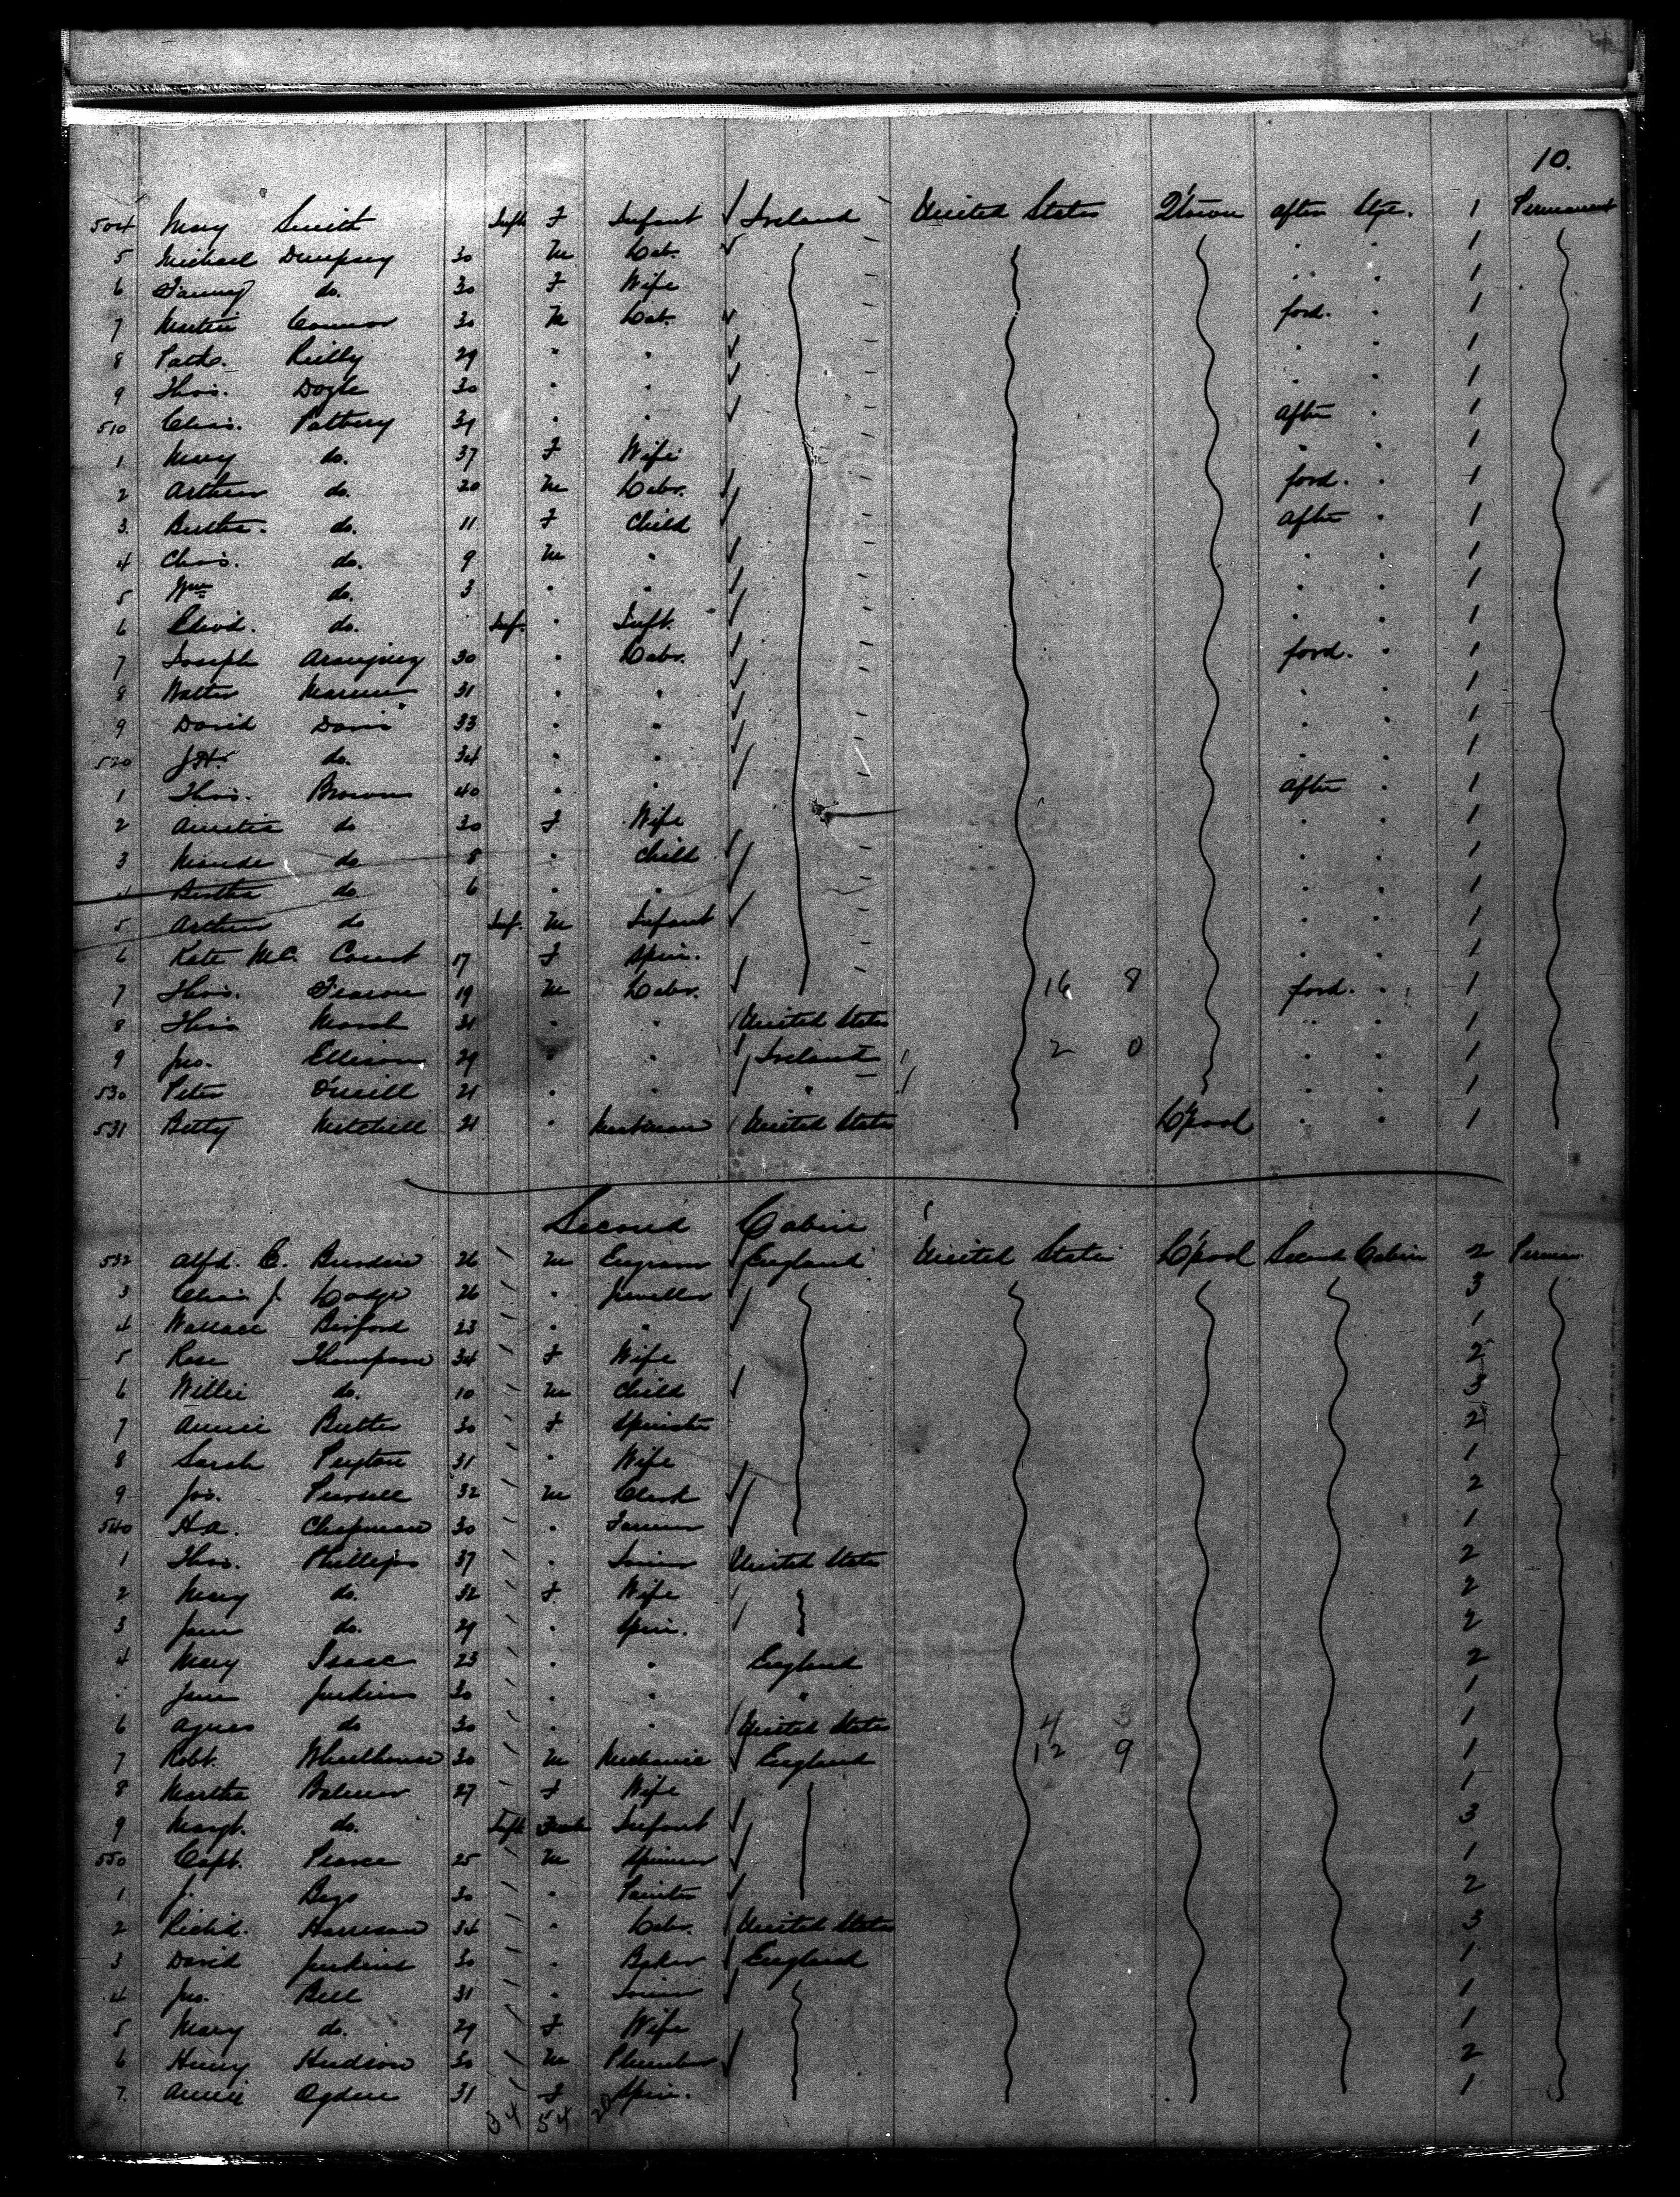 10.
504 Mary Smith Inft F Infant Ireland United States Q'town after Stge. 1 Permanent
5 Michael Dempsey 30 M Lab. " " 1
6 Fanny do. 30 F Wife " " 1
7 Martin Connor 30 M Lab. ford. " 1
8 Patk. Reilly 29 " " " " 1
9 Thos. Doyle 30 " " " " 1
510 Chas. Pattery 39 " " after " 1
1 Mary do. 37 F Wife " " 1
2 Arthur do. 20 M Labr. ford. " 1
3 Bertha do. 11 F Child after " 1
4 Chas. do. 9 M " " " 1
5 Wm do. 3 " " " " 1
6 do. Inf. " Inft. " " 1
7 Joseph 30 " Labr. ford. " 1
8 Walter 31 " " " " 1
9 David Davis 33 " " " " 1
520 J.H. do. 34 " " " " 1
1 Thos. Brown 40 " " after " 1
2 Amelia do 30 F Wife " " 1
3 Maude do 8 " Child " " 1
4 Bertha do 6 " " " " 1
5 Arthur do Inf. M Infant " " 1
6 Kate Mc. Court 17 F Spin. " " 1
7 Thos. 19 M Labr. 16 8 ford. " 1
8 Thos Marsh 31 " " United States " " 1
9 Jno. Ellison 29 " " Ireland 2 0 " " 1
530 Peter O'Neill 21 " " " " " 1
531 Betty Mitchell 21 " United States L'pool " " 1
Second Cabin
532 Alfd. C. 26 M England United States L'pool Second Cabin 2 Perman
3 Chas J. Lodge 26 " Jeweller 3
4 Wallace Binford 23 " " 1
5 Rose Thompson 34 F Wife 2
6 Willie do. 10 M Child 3
7 Annie 30 F Spinster 2
8 Sarah Peyton 31 " Wife 1
9 Jos. Pursell 32 M Clerk 2
540 H.A. Chapman 30 " Farmer 1
1 Thos. Phillips 37 " Joiner United States 2
2 Mary do. 32 F Wife 2
3 Jane do. 29 " Spin. 2
4 Mary Isaac 23 " " England 2
" Jane Jenkins 30 " " " 1
6 Agnes do 30 " " United States 4 3 1
7 Robt. Wheelhouse 30 M Mechanic England 12 9 1
8 Martha Balmer 27 F Wife 1
9 Margt. do. Inft Infant 3
550 Capt. Pearce 25 M Spinner 1
1 J. Begs 30 " Painter 2
2 Richd. Harrison 34 " Labr. United States 3
3 David Jenkins 30 " Baker England 1
4 Jno. Bell 31 " Joiner 1
5 Mary do. 29 F Wife 1
6 Henry Hudson 30 M Plumber 2
7 Annie Ogden 31 F Spin. 1
34 54 20